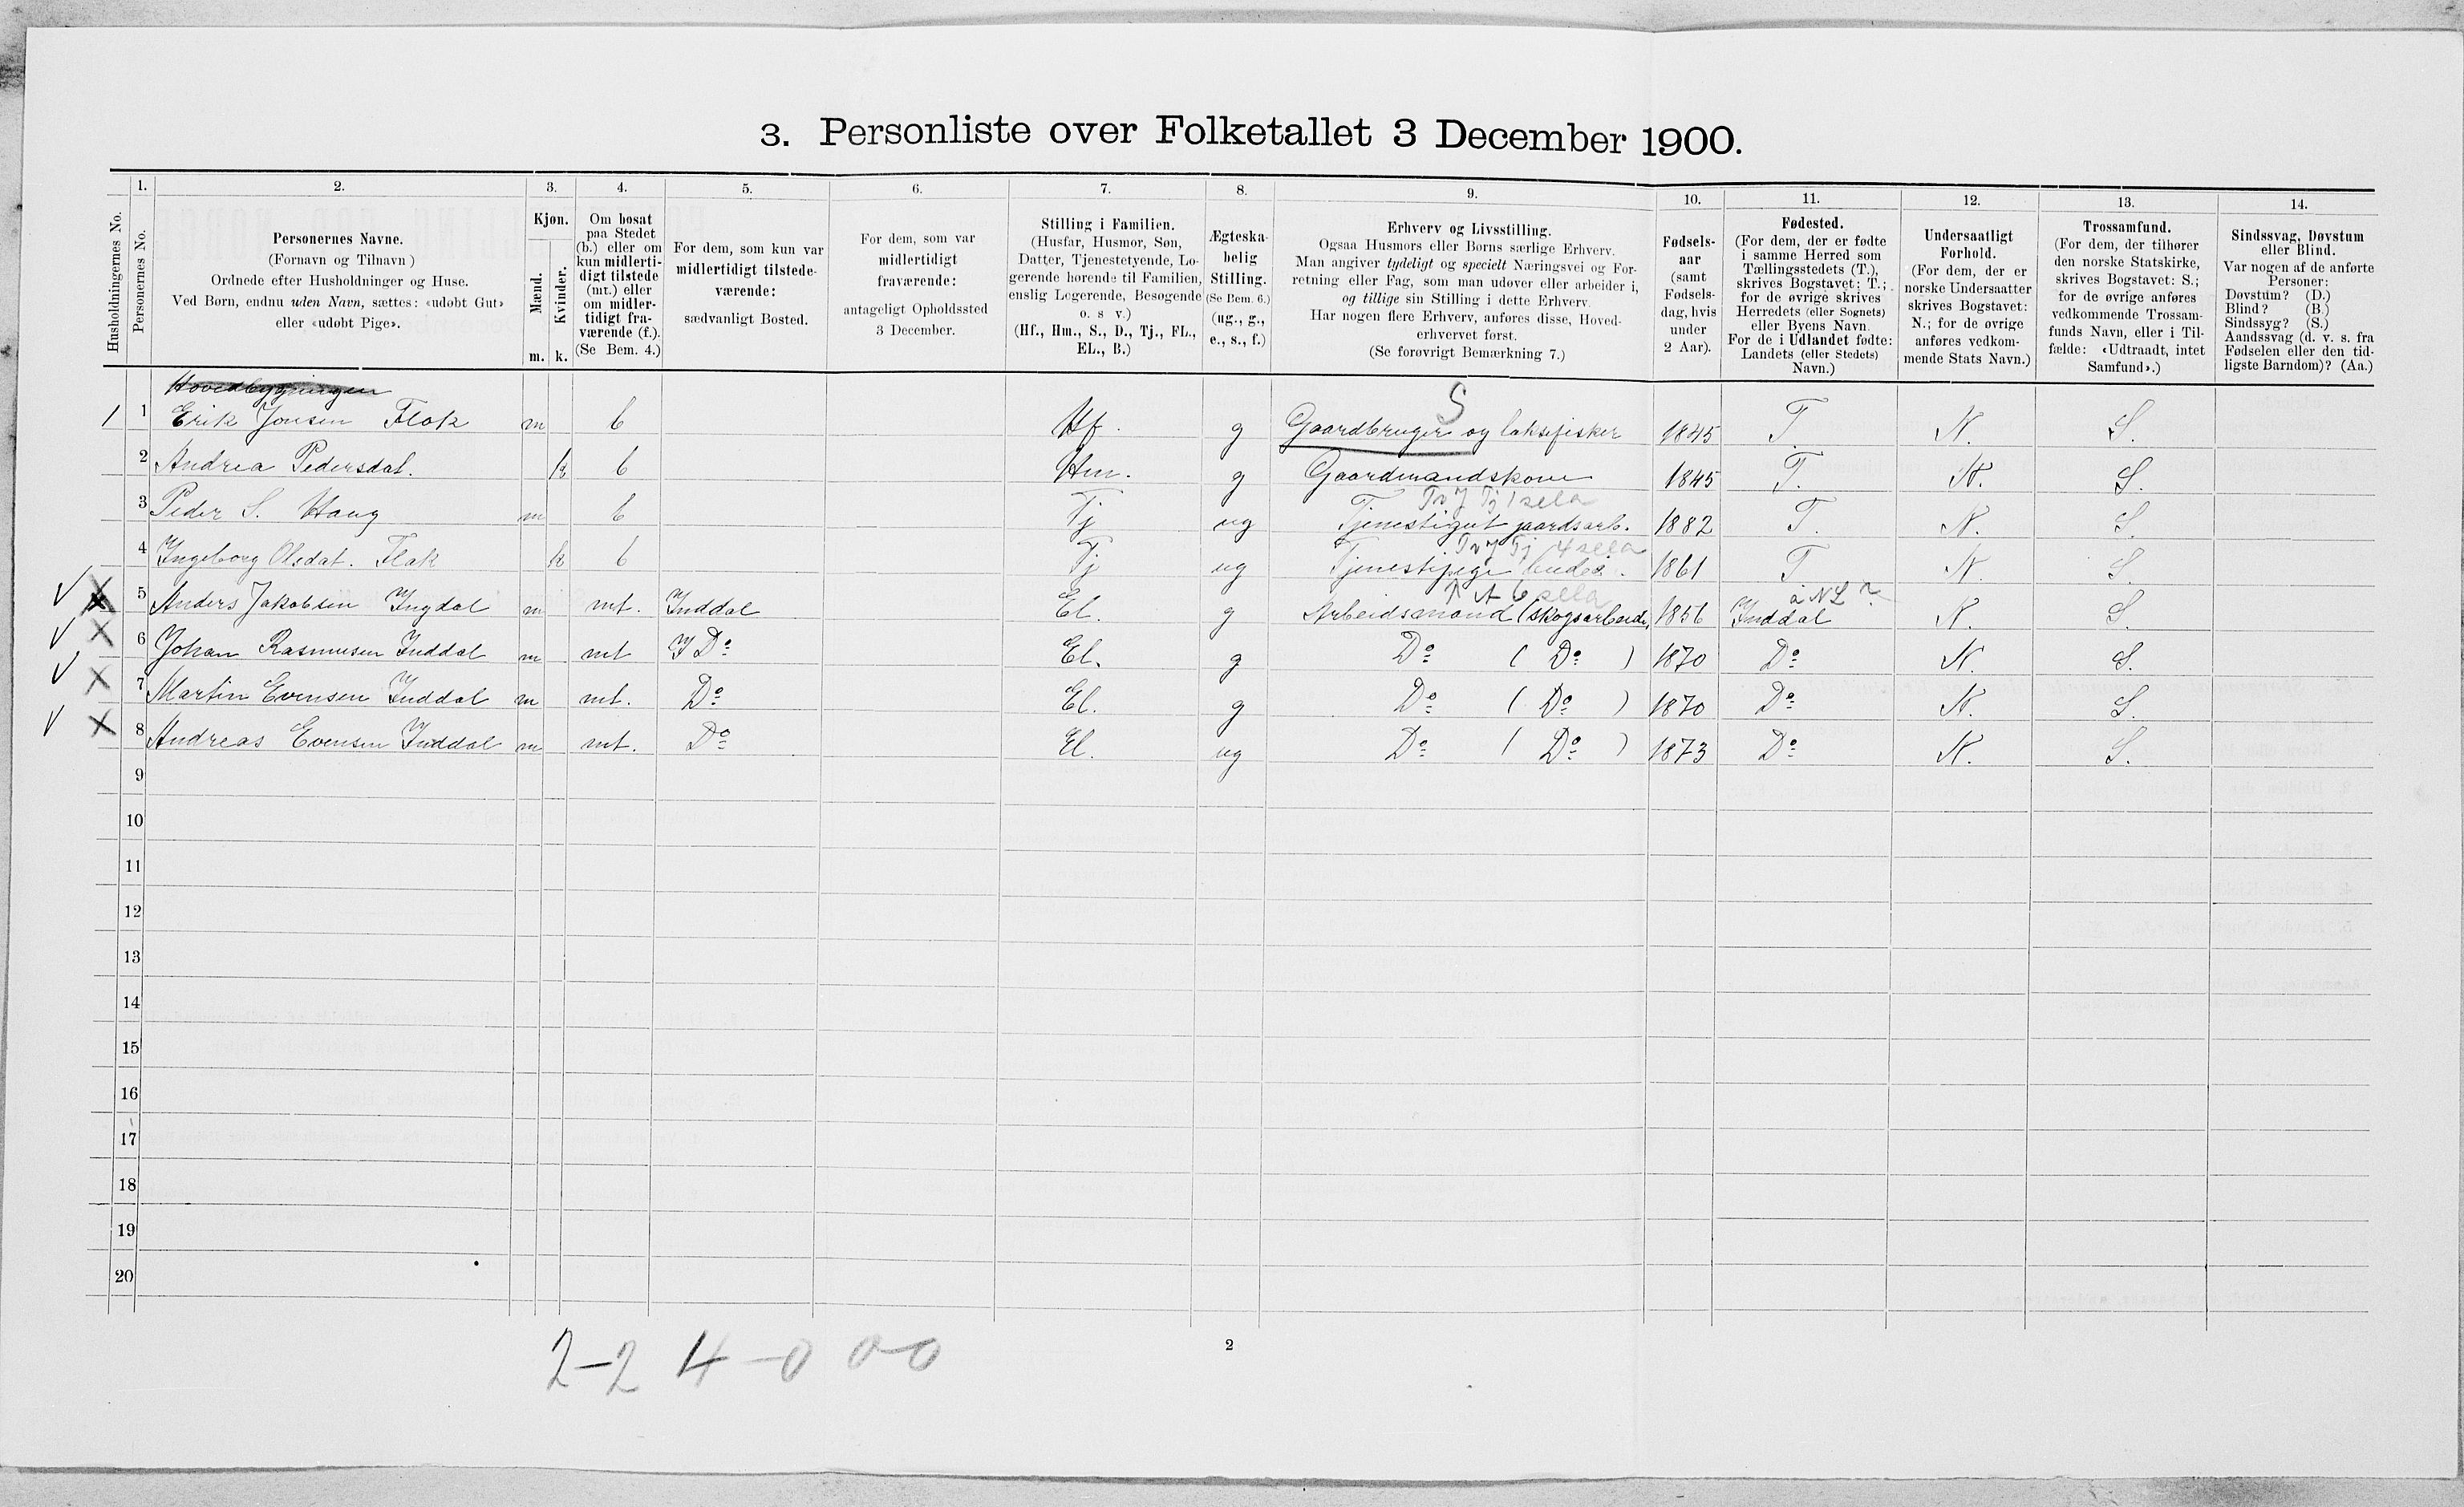 3. Personliste over Folketallet 3 December 1900.
1. 2. 3. 4. 5. 6. 7. 8. 9. 10. 11. 12. 13. 14.
Husholdningernes No.
Personernes No.
Personernes Navne.
(Fornavn og Tilnavn)
Ordnede efter Husholdninger og Huse.
Ved Børn, endnu uden Navn, sættes: «udøbt Gut»
eller «udøbt Pige».
Kjøn.
Mænd.
Kvinder.
m. k.
Om bosat
paa Stedet
(b.) eller om
kun midlerti-
digt tilstede
(mt.) eller
om midler-
tidigt fra-
værende (f.).
(Se Bem. 4.)
For dem, som kun var
midlertidigt tilstede-
værende:
sædvanligt Bosted.
For dem, som var
midlertidigt
fraværende:
antageligt Opholdssted
3 December.
Stilling i Familien.
(Husfar, Husmor, Søn,
Datter, Tjenestetyende, Lo-
gerende hørende til Familien,
enslig Logerende, Besøgende
o. s v.)
(Hf., Hm., S., D., Tj., FL.,
EL., B.)
Ægteska-
belig
Stilling.
(Se Bem. 6.)
(ug., g.,
e., s., f.)
Erhverv og Livsstilling.
Ogsaa Husmors eller Børns særlige Erhverv.
Man angiver tydeligt og specielt Næringsvei og For-
retning eller Fag, som man udøver eller arbeider i,
og tillige sin Stilling i dette Erhverv.
Har nogen flere Erhverv, anføres disse, Hoved-
erhvervet først.
(Se forøvrigt Bemærkning 7.)
Fødsels-
aar
(samt
Fødsels-
dag, hvis
under
2 Aar).
Fødested.
(For dem, der er fødte
i samme Herred som
Tællingsstedets (T.),
skrives Bogstavet: T.;
for de øvrige skrives
Herredets (eller Sognets)
eller Byens Navn.
For de i Udlandet fødte:
Landets (eller Stedets)
Navn.)
Undersaatligt
Forhold.
(For dem, der er
norske Undersaatter
skrives Bogstavet:
N.; for de øvrige
anføres vedkom-
mende Stats Navn.)
Trossamfund.
(For dem, der tilhører
den norske Statskirke,
skrives Bogstavet: S.;
for de øvrige anføres
vedkommende Trossam-
funds Navn, eller i Til-
fælde: «Udtraadt, intet
Samfund».)
Sindssvag, Døvstum
eller Blind.
Var nogen af de anførte
Personer:
Døvstum? (D.)
Blind? (B.)
Sindssyg? (S.)
Aandssvag (d. v. s. fra
Fødselen eller den tid-
ligste Barndom)? (Aa.)
Hovedbygningen
S
1 1 Erik Jonsen Flak m b Hf. g Gaardbruger og laksefisker 1845 T. N. S.
2 Andrea Pedersdat. k b Hm. g Gaardmandskone 1845 T. N. S.
3 Peder S. Haug m b Tj ug Tjenestegut gaardsarb. 1882 T. N. S.
4 Ingeborg Olsdat. Flak k b Tj ug Tjenestepige 1861 T N. S.
5 Anders Jakobsen Ingdal m mt. Inddal El. g Arbeidsmand (skogsarbeide, 1856 Inddal N. S.
6 Johan Rasmusen Inddal m mt Do El. g Do ( Do ) 1870 Do N. S.
7 Martin Evensen Inddal m mt. Do El. g Do ( Do ) 1870 Do N. S.
8 Andreas Evensen Inddal m mt. Do El. ug Do ( Do ) 1873 Do N. S.
9
10
11
12
13
14
15
16
17
18
19
20
2-2 4-0 0-0
2